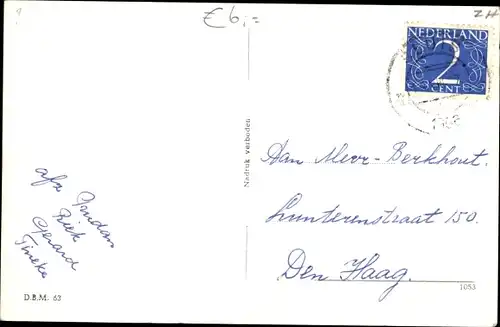 €6,=
ZH
NEDERLAND
2
CENT
Nadruk verboden
Aan Mevr- Berkhout.
Lunterenstraat 150.
Den Haag.
afz.
Riek
Gerard
Tineke
D.B.M. 63
1053